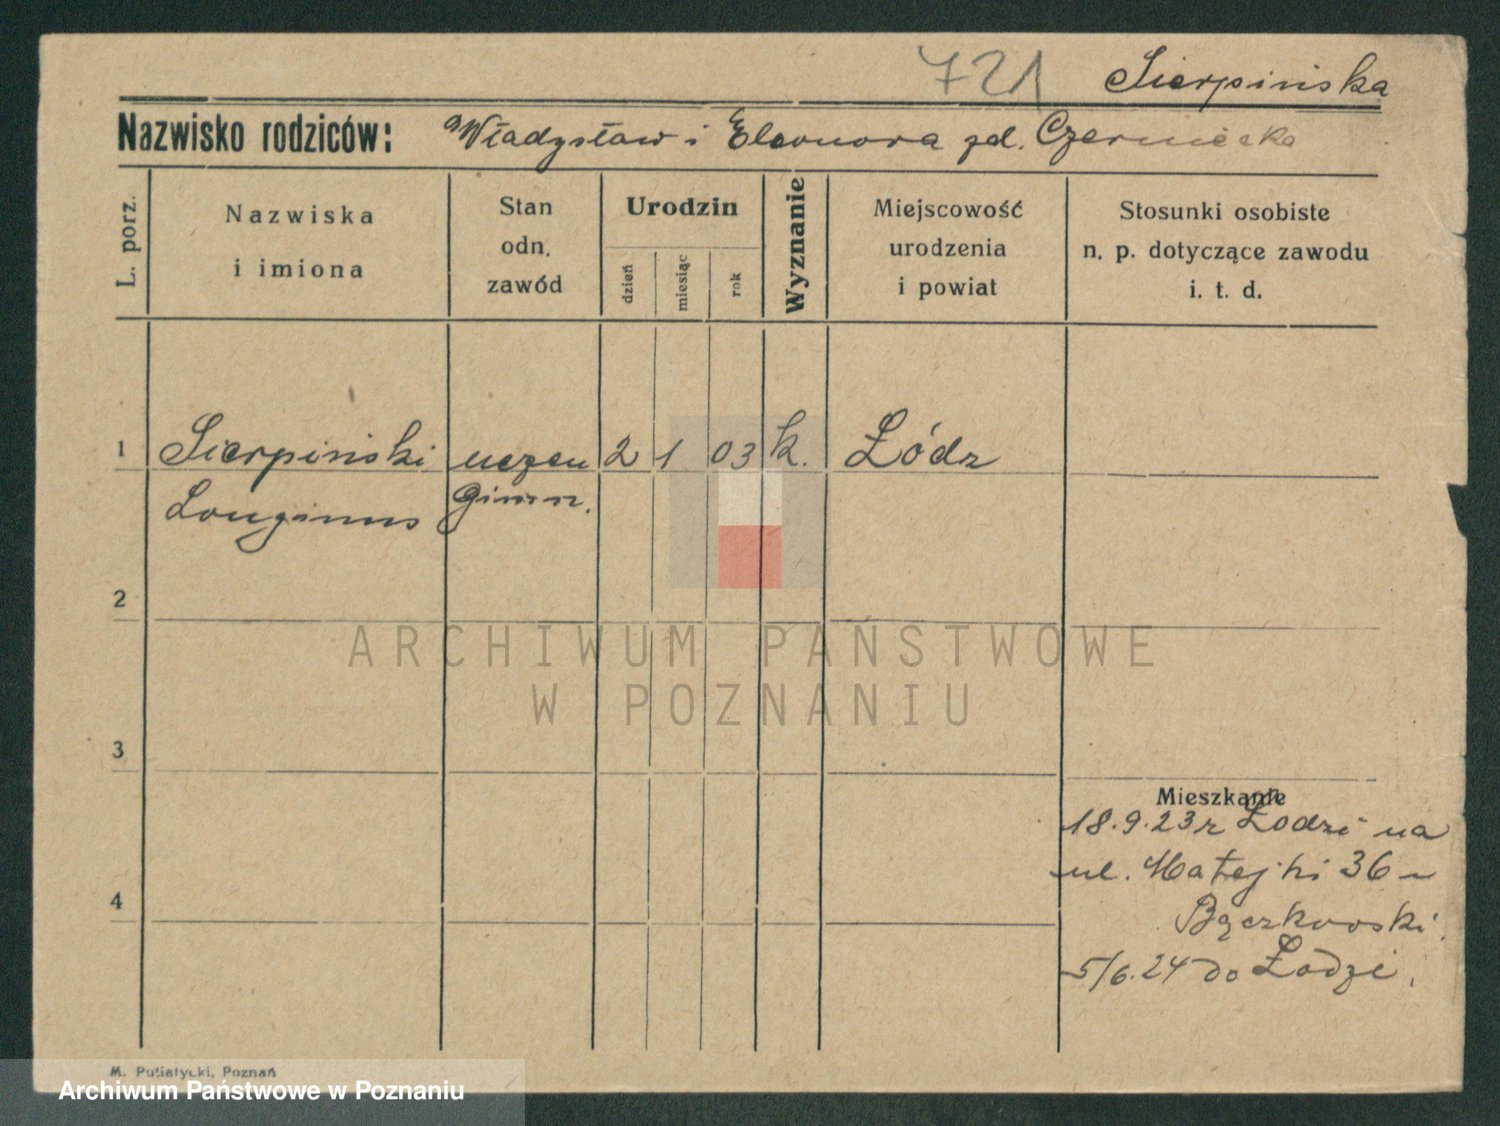 721 Sierpińska
Nazwisko rodziców: Władysław i Eleonora zd. Czerniecka
L. porz.
Nazwiska
i imiona
Stan
odn.
zawód
Urodzin
dzień
miesiąc
rok
Wyznanie
Miejscowość
urodzenia
i powiat
Stosunki osobiste
n. p. dotyczące zawodu
i. t. d.
1 Sierpiński uczeń 2 1 03 k. Łódz
Longinus Gimn.
2
ARCHIWUM PAŃSTWOWE
W POZNANIU
3
Mieszkanie
18.9.23 z Łodzi na
ul. Matejki 36
4
Bączkowski
5/6.24 do Łodzi.
M. Putiatycki, Poznań
Archiwum Państwowe w Poznaniu